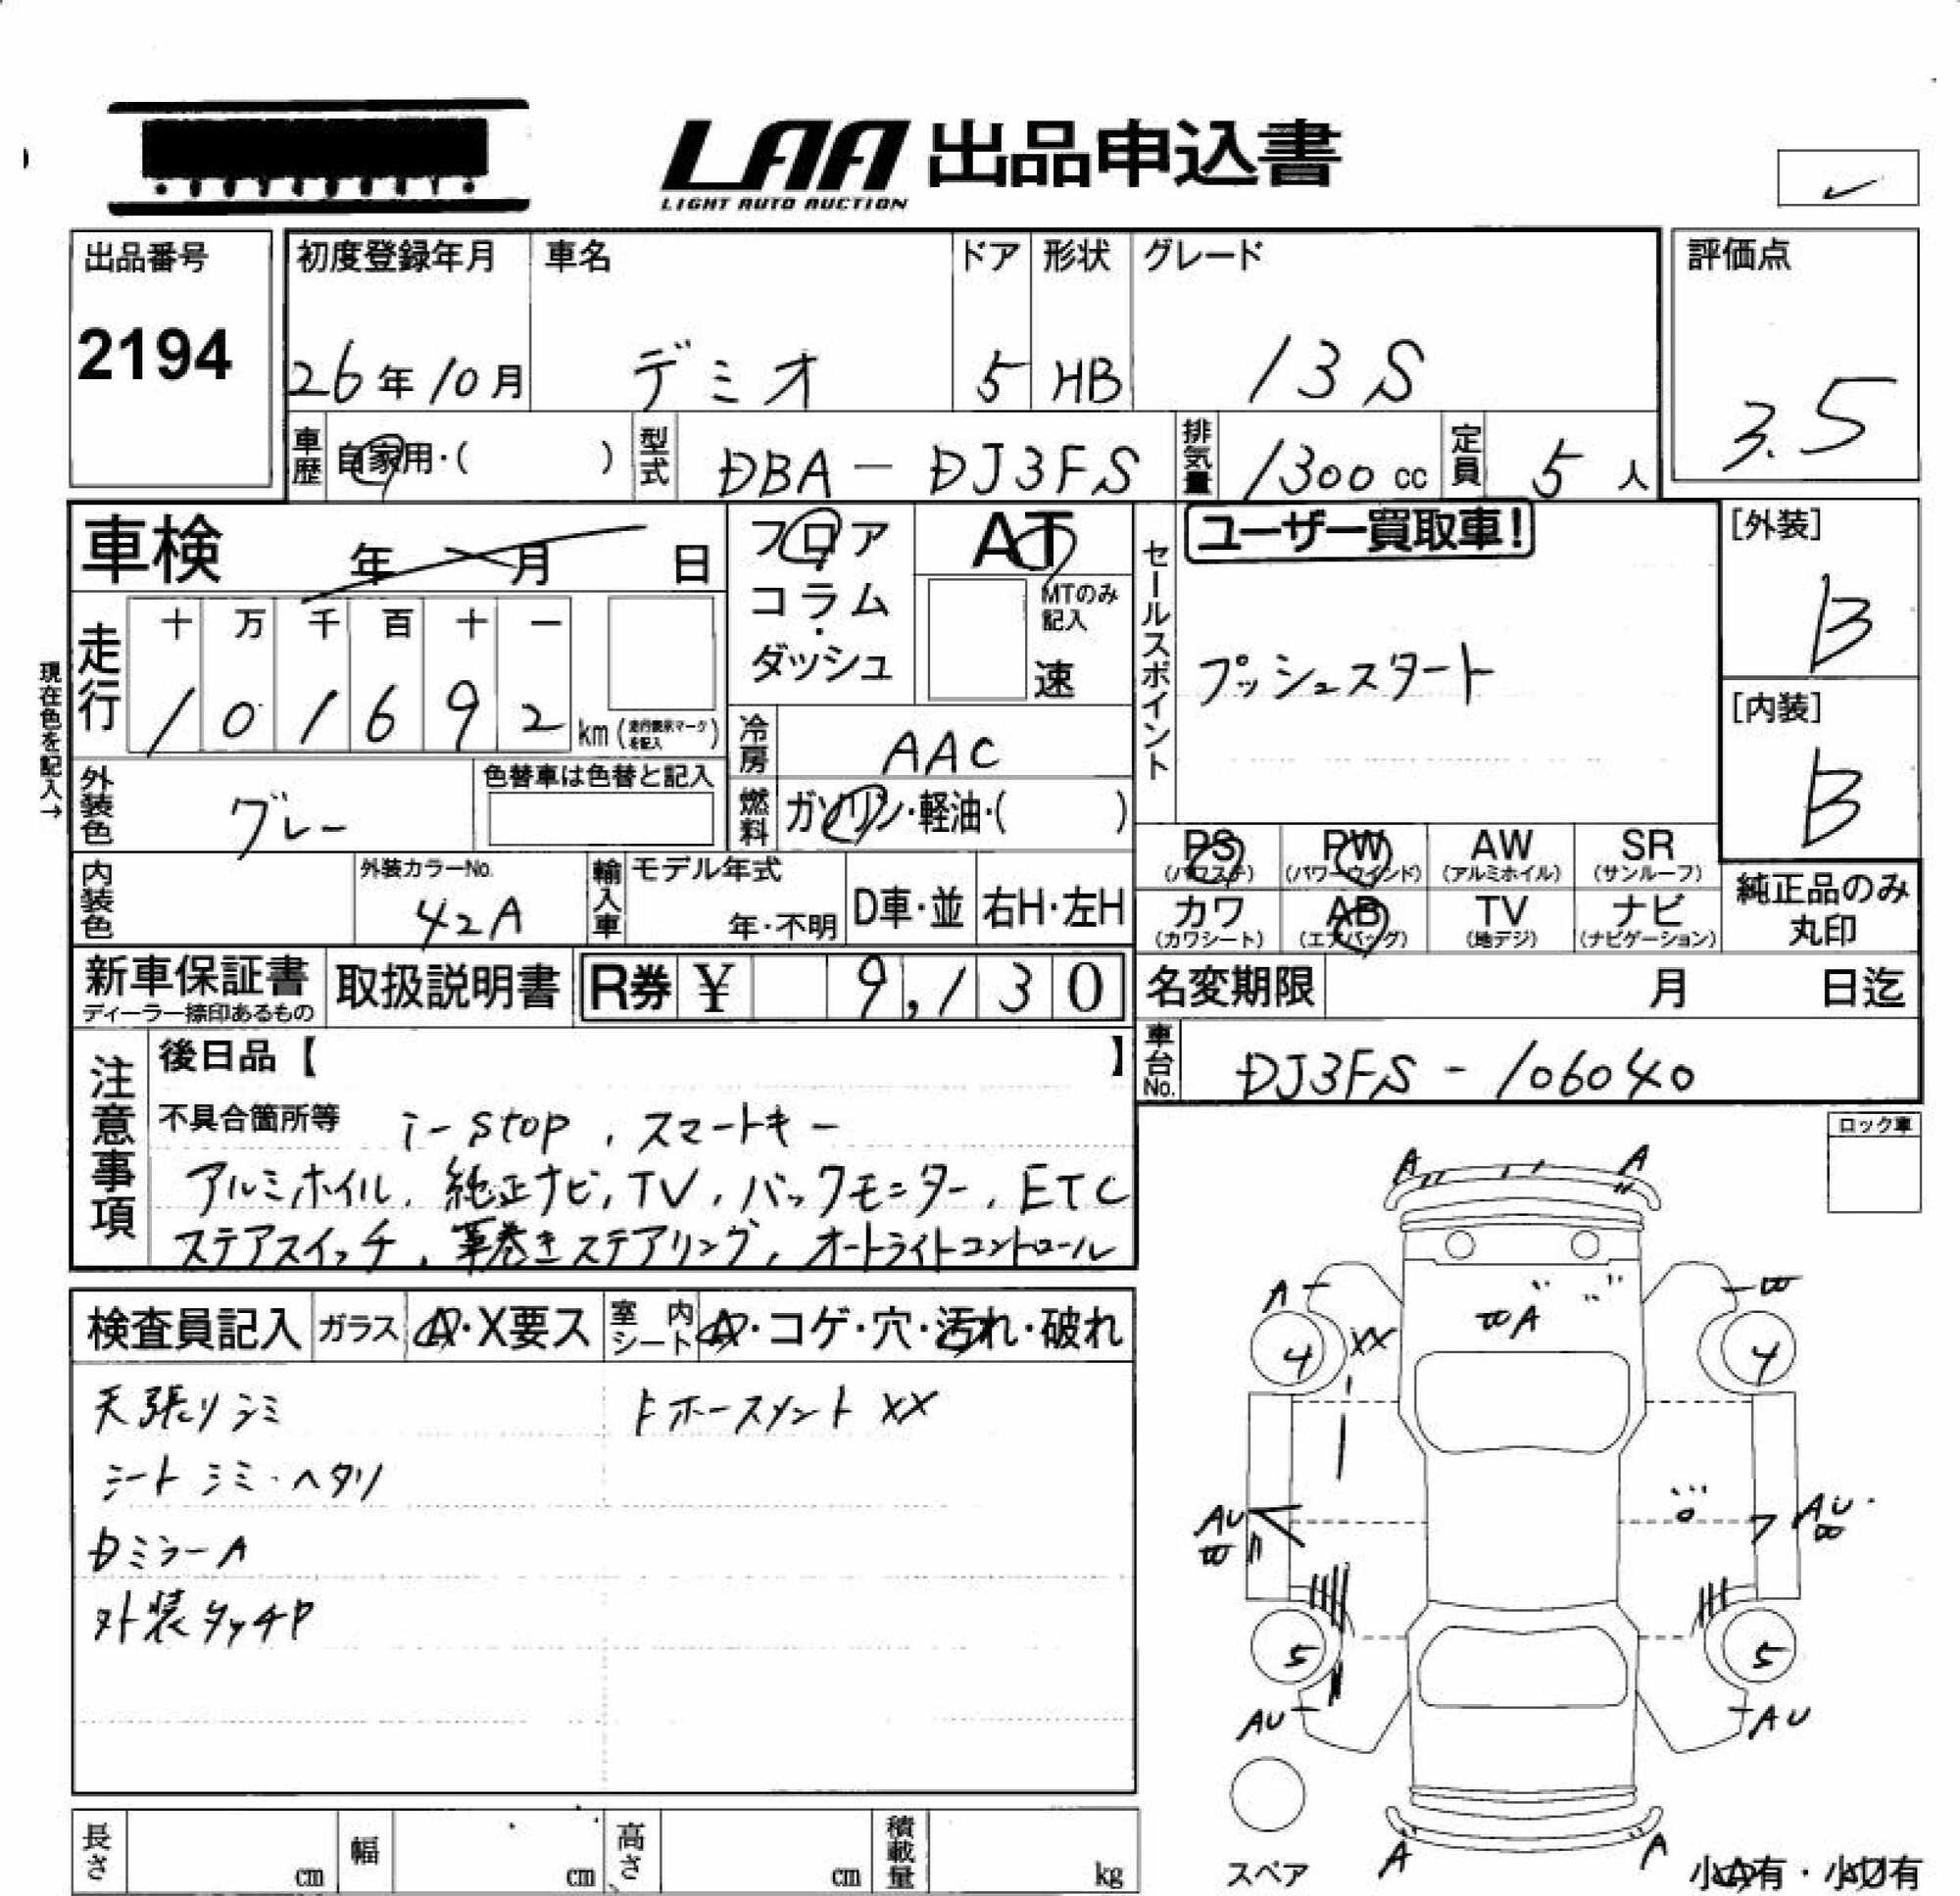 LAA 出品申込書
LIGHT AUTO AUCTION
出品番号
2194
初度登録年月
26年10月
車名
デミオ
ドア
5
形状
HB
グレード
13S
評価点
3.5
車歴
自家用・( )
型式
DBA-DJ3FS
排気量
1300cc
定員
5人
車検 年 月 日
フロア
コラム・
ダッシュ
AT
MTのみ
記入
速
セールスポイント
ユーザー買取車!
プッシュスタート
[外装]
B
[内装]
B
現在色を記入→
走行
十 万 千 百 十 一
1 0 1 6 9 2 km (走行表示マークを記入)
冷房
AAC
外装色
グレー
色替車は色替と記入
燃料
ガソリン・軽油・( )
内装色
外装カラーNo.
42A
輸入車
モデル年式
年・不明
D車・並
右H・左H
PS (パワステ)
PW (パワーウインド)
AW (アルミホイル)
SR (サンルーフ)
カワ (カワシート)
AB (エアバッグ)
TV (地デジ)
ナビ (ナビゲーション)
純正品のみ
丸印
新車保証書
ディーラー捺印あるもの
取扱説明書
R券 ¥ 9,130
名変期限 月 日迄
車台No.
DJ3FS-106040
注意事項
後日品【 】
不具合箇所等 i-stop、スマートキー
アルミホイル、純正ナビ、TV、バックモニター、ETC
ステアスイッチ、革巻きステアリング、オートライトコントロール
ロック車
検査員記入
ガラス
A・X要ス
室内シート
A・コゲ・穴・汚れ・破れ
天張リシミ
Fホースメント XX
シート シミ・ヘタリ
Dミラー A
外装タッチP
A A
A
A
XX
4 4
AU AU
5 5
AU AU
A A
スペア
小A有・小U有
長さ cm
幅 cm
高さ cm
積載量 kg